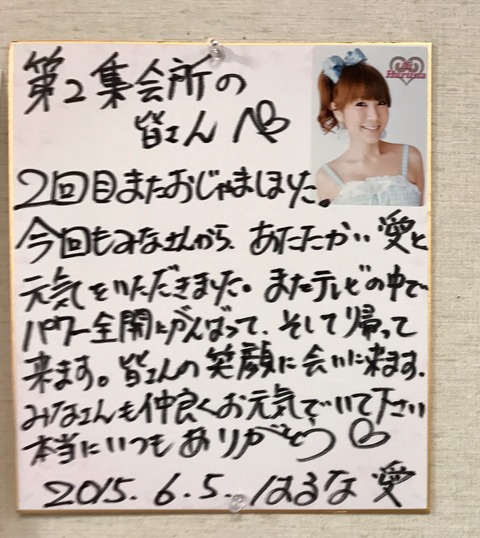 第2集会所の
皆さんへ♡
愛
Haruna
2回目またおじゃましました。
今回もみなさんから、あたたかい愛と
元気をいただきました。またテレビの中で
パワー全開でがんばって、そして帰って
来ます。皆さんの笑顔に会いに来ます。
みなさんも仲良くお元気でいて下さい
本当にいつもありがとう♡
2015.6.5. はるな愛